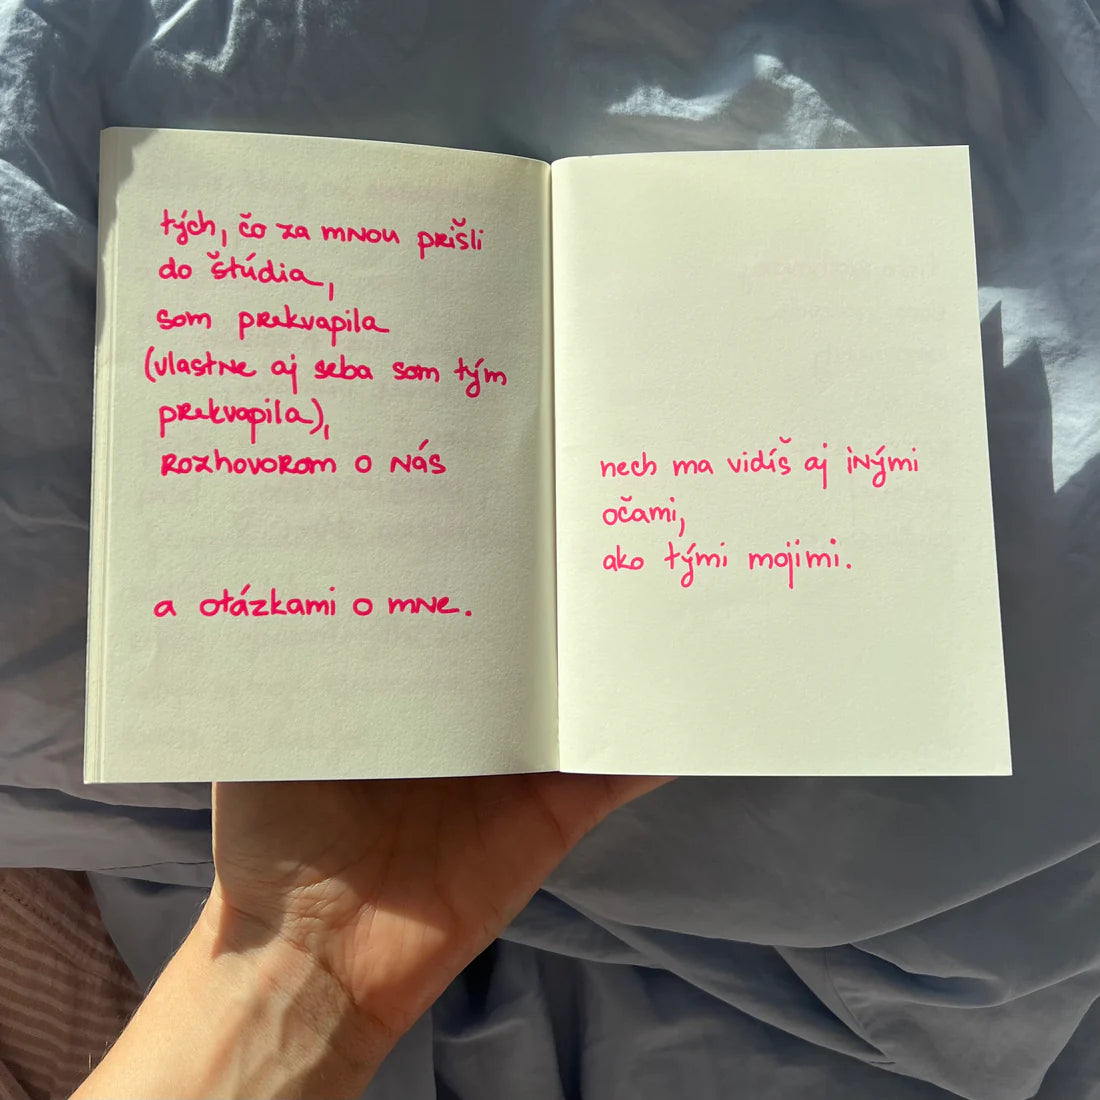 tých, čo za mnou prišli
do štúdia,
som prekvapila
(vlastne aj seba som tým
prekvapila),
rozhovorom o nás
a otázkami o mne.
nech ma vidíš aj inými
očami,
ako tými mojimi.